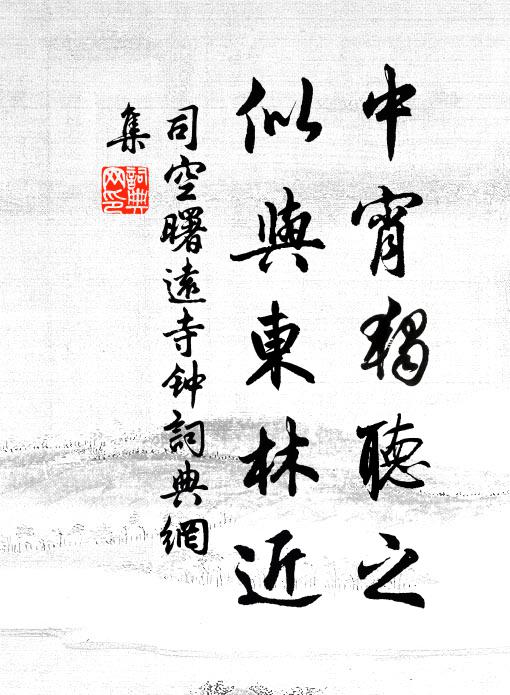 中宵獨聽之
似與東林近
司空曙遠寺钟詞典網
集
詞典
网印